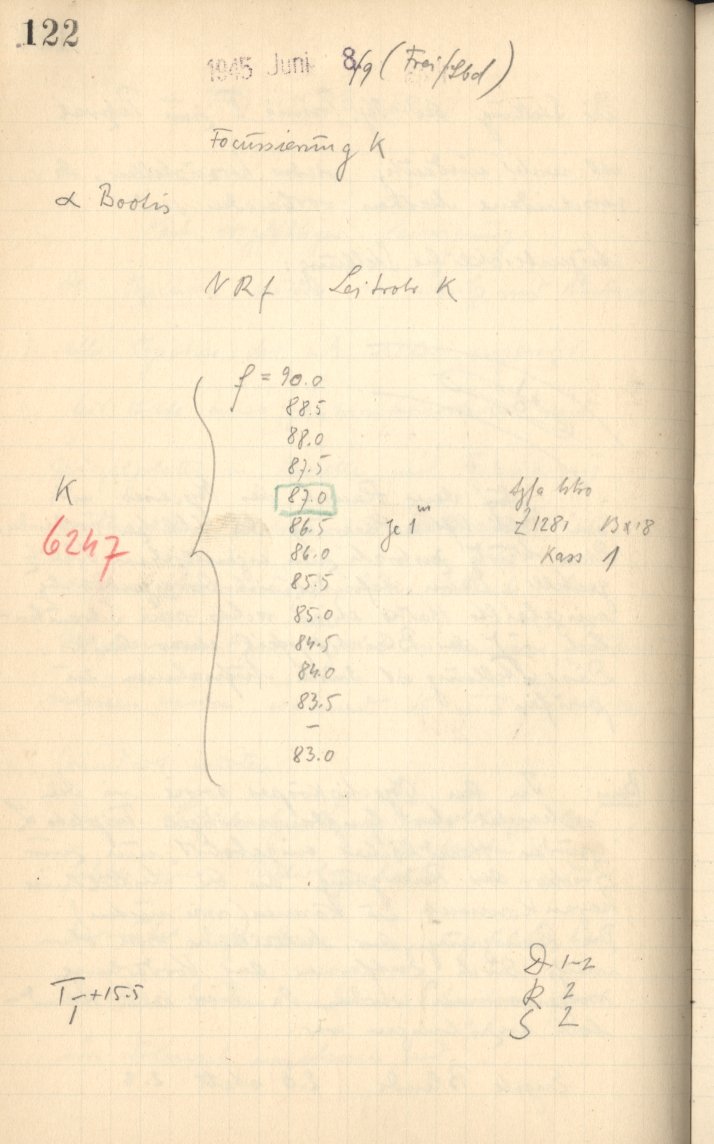 122
1945 Juni 8/9 (Frei/Sbd)
Focussierung K
α Bootis
NRf Leitrohr K
f = 90.0
88.5
88.0
87.5
K
87.0
Agfa Astro
6247
86.5 je 1ᵐ Z1281 18x18
86.0 Kass 1
85.5
85.0
84.5
84.0
83.5
–
83.0
D 1-2
+15.5
R 2
S 2